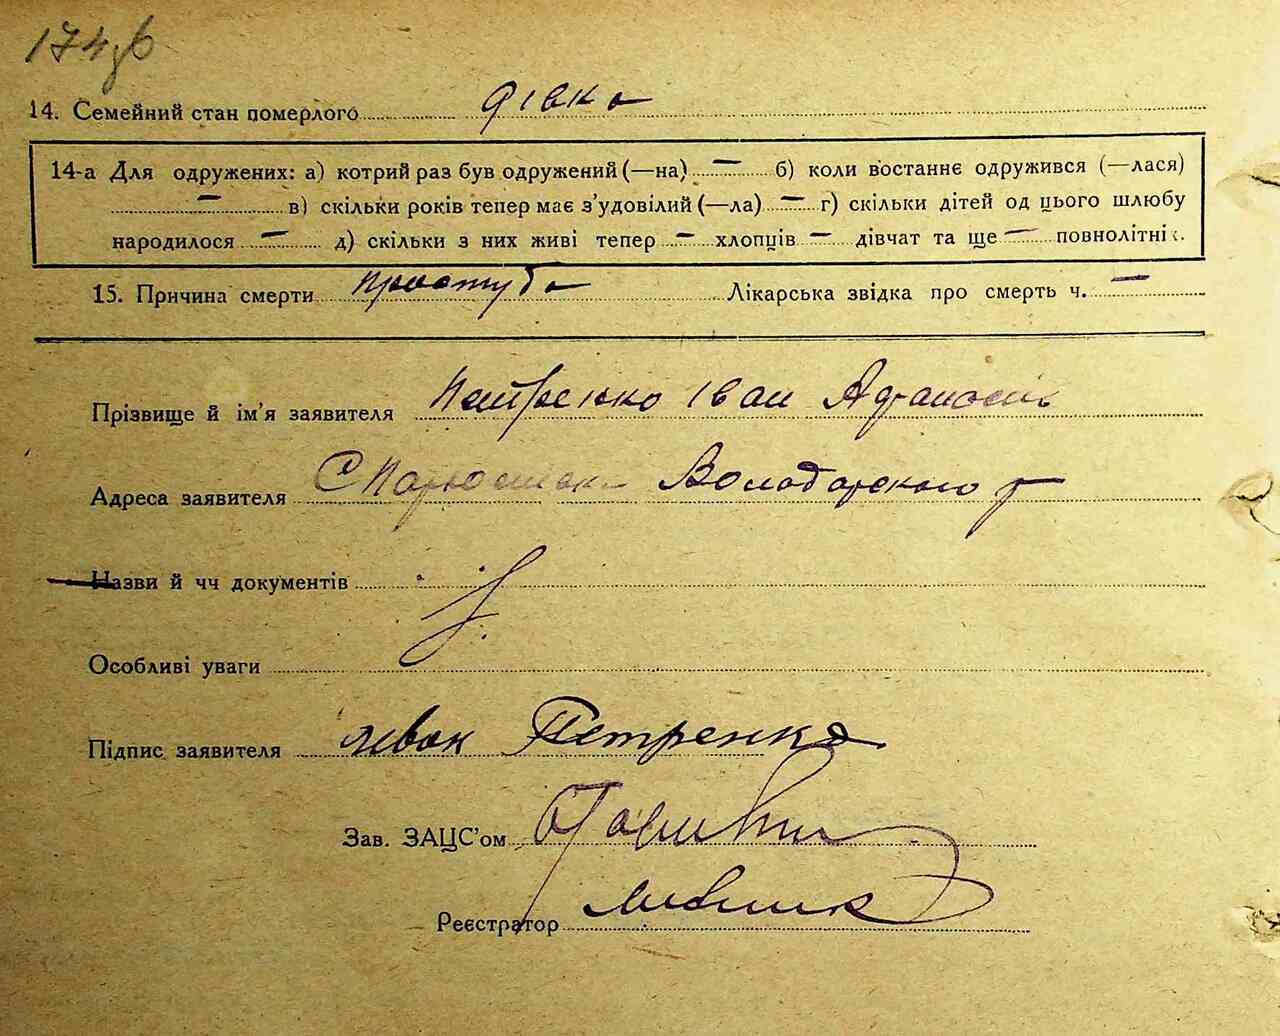 174зв
14. Семейний стан померлого дівка
14-а Для одружених: а) котрий раз був одружений (—на) — б) коли востаннє одружився (—лася)
— в) скільки років тепер має з'удовілий (—ла) — г) скільки дітей од цього шлюбу
народилося — д) скільки з них живі тепер — хлопців — дівчат та ще — повнолітніх.
15. Причина смерти простуда Лікарська звідка про смерть ч. —
Прізвище й ім'я заявителя Петренко Іван
Адреса заявителя С Володарського р
Назви й чч документів
Особливі уваги
Підпис заявителя Петренко
Зав. ЗАЦС'ом
Реєстратор